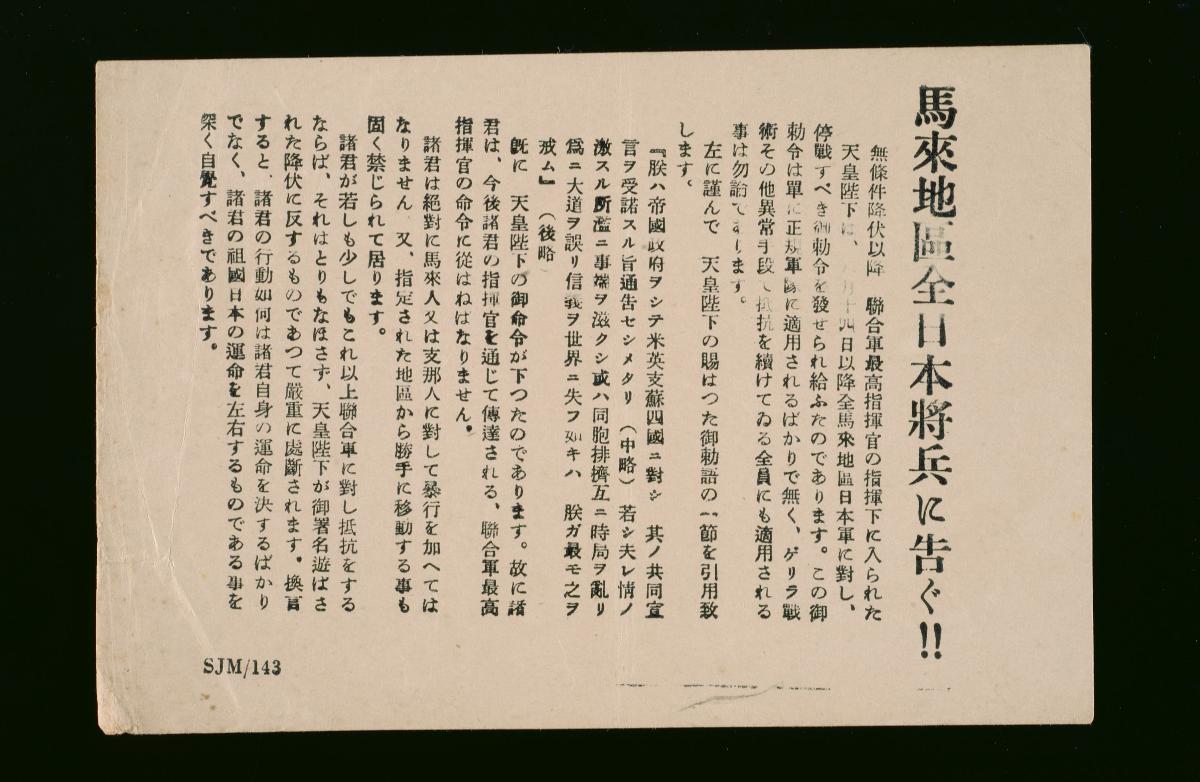 馬來地區全日本將兵に告ぐ!!
無條件降伏以降 聯合軍最高指揮官の指揮下に入られた
天皇陛下は、 月十四日以降全馬來地區日本軍に對し、
停戰すべき御勅令を發せられ給ふたのであります。この御
勅令は單に正規軍隊に適用されるばかりで無く、ゲリラ戰
術その他異常手段で抵抗を續けてゐる全員にも適用される
事は勿論であります。
左に謹んで 天皇陛下の賜はつた御勅語の一節を引用致
します。
『朕ハ帝國政府ヲシテ米英支蘇四國ニ對シ 其ノ共同宣
言ヲ受諾スル旨通告セシメタリ (中略) 若シ夫レ情ノ
激スル所濫ニ事端ヲ滋クシ或ハ同胞排擠互ニ時局ヲ亂リ
爲ニ大道ヲ誤リ信義ヲ世界ニ失フ如キハ 朕ガ最モ之ヲ
戒ム』 (後略)
既に 天皇陛下の御命令が下つたのであります。故に諸
君は、今後諸君の指揮官を通じて傳達される、聯合軍最高
指揮官の命令に從はねはなりません。
諸君は絶對に馬來人又は支那人に對して暴行を加へては
なりません 又、指定された地區から勝手に移動する事も
固く禁じられて居ります。
諸君が若しも少しでもこれ以上聯合軍に對し抵抗をする
ならば、それはとりもなほさず、天皇陛下が御署名遊ばさ
れた降伏に反するものであつて嚴重に處斷されます。換言
すると、諸君の行動如何は諸君自身の運命を決するばかり
でなく、諸君の祖國日本の運命を左右するものである事を
深く自覺すべきであります。
SJM/143